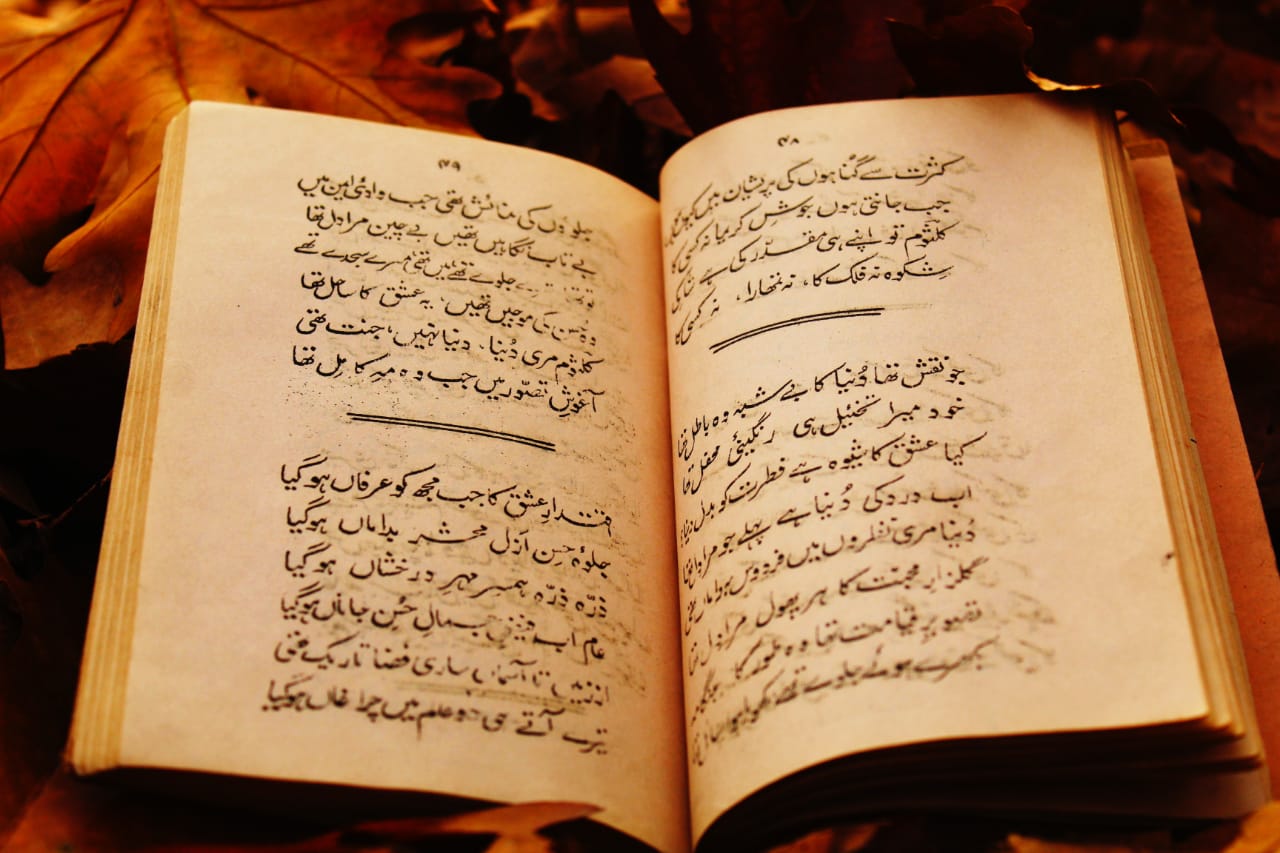 ۴۸
کثرت سے گناہوں کی پریشان ہیں کیوں
جب جانتی ہوں جوش کریما نہ کسی کا
کلثوم تو اپنے ہی مقدر کی ہے شاکی
شکوہ نہ فلک کا، نہ تمھارا، نہ کسی کا
جو نقش تھا دُنیا کا بے شبہ وہ باطل تھا
خود میرا تخئیل ہی رنگینئ محفل تھا
کیا عشق کا شیوہ ہے فطرت کو بدل دینا
اب درد کی دُنیا ہے پہلے جو مرا دل تھا
دُنیا مری نظروں میں فردوس بداماں تھی
گلزارِ محبت کا ہر پھول مرا دل تھا
تصویرِ قیامت تھا وہ
بکھرے ہوئے جلوے تھے
۴۹
جلوؤں کی نمائش تھی جب وادئ ایمن میں
بے تاب نگاہیں تھیں بے چین مرا دل تھا
جلوے تھے میں تھی مرے سجدے تھے
وہ حسن کی موجیں تھیں، یہ عشق کا ساحل تھا
کلثوم مری دُنیا، دنیا نہیں، جنت تھی
آغوشِ تصوّر میں جب وہ مہِ کامل تھا
اقتدارِ عشق کا جب مجھ کو عرفاں ہوگیا
جلوۂ حسن ازل محشر بداماں ہوگیا
ذرّہ ذرّہ ہمسر مہر درخشاں ہوگیا
عام اب فیضِ جمالِ حُسنِ جاناں ہوگیا
از زمیں تا آسماں ساری فضا تاریک تھی
تیرے آتے ہی دو عالم میں چراغاں ہوگیا